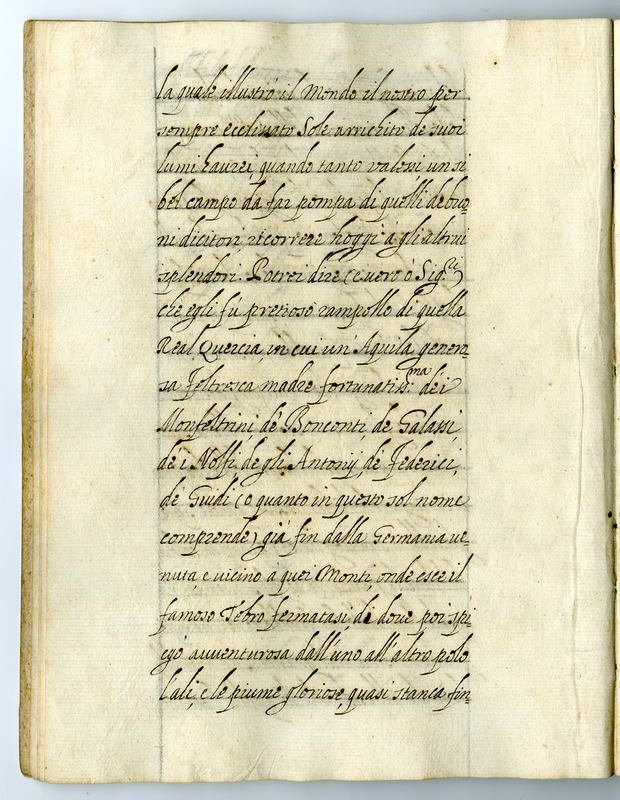 la quale illustrò il Mondo il nostro per
sempre ecclissato Sole arrichito de suoi
lumi havrei, quando tanto valessi, un sì
bel campo da far pompa di quelli de buo=
ni dicitori ricorrere hoggi à gli altrui
splendori. Potrei dire (e vero ò Sig.ri)
che egli fù pretioso rampollo di quella
Real Quercia, in cui un' Aquila genero=
sa Feltresca madre fortunatiss:ma dè i
Monfeltrini, dè Bonconti, de Galassi,
dè i Nolfi, degli Antonij, dè Federici,
dè Guidi (o quanto in questo sol nome
comprende) già fin dalla Germania ve=
nuta, e vicino à quei Monti, onde esce il
famoso Tebro fermatasi, di dove poi spi=
egò avventurosa dall'uno all'altro polo
l'ali, e le piume gloriose, quasi stanca fin=